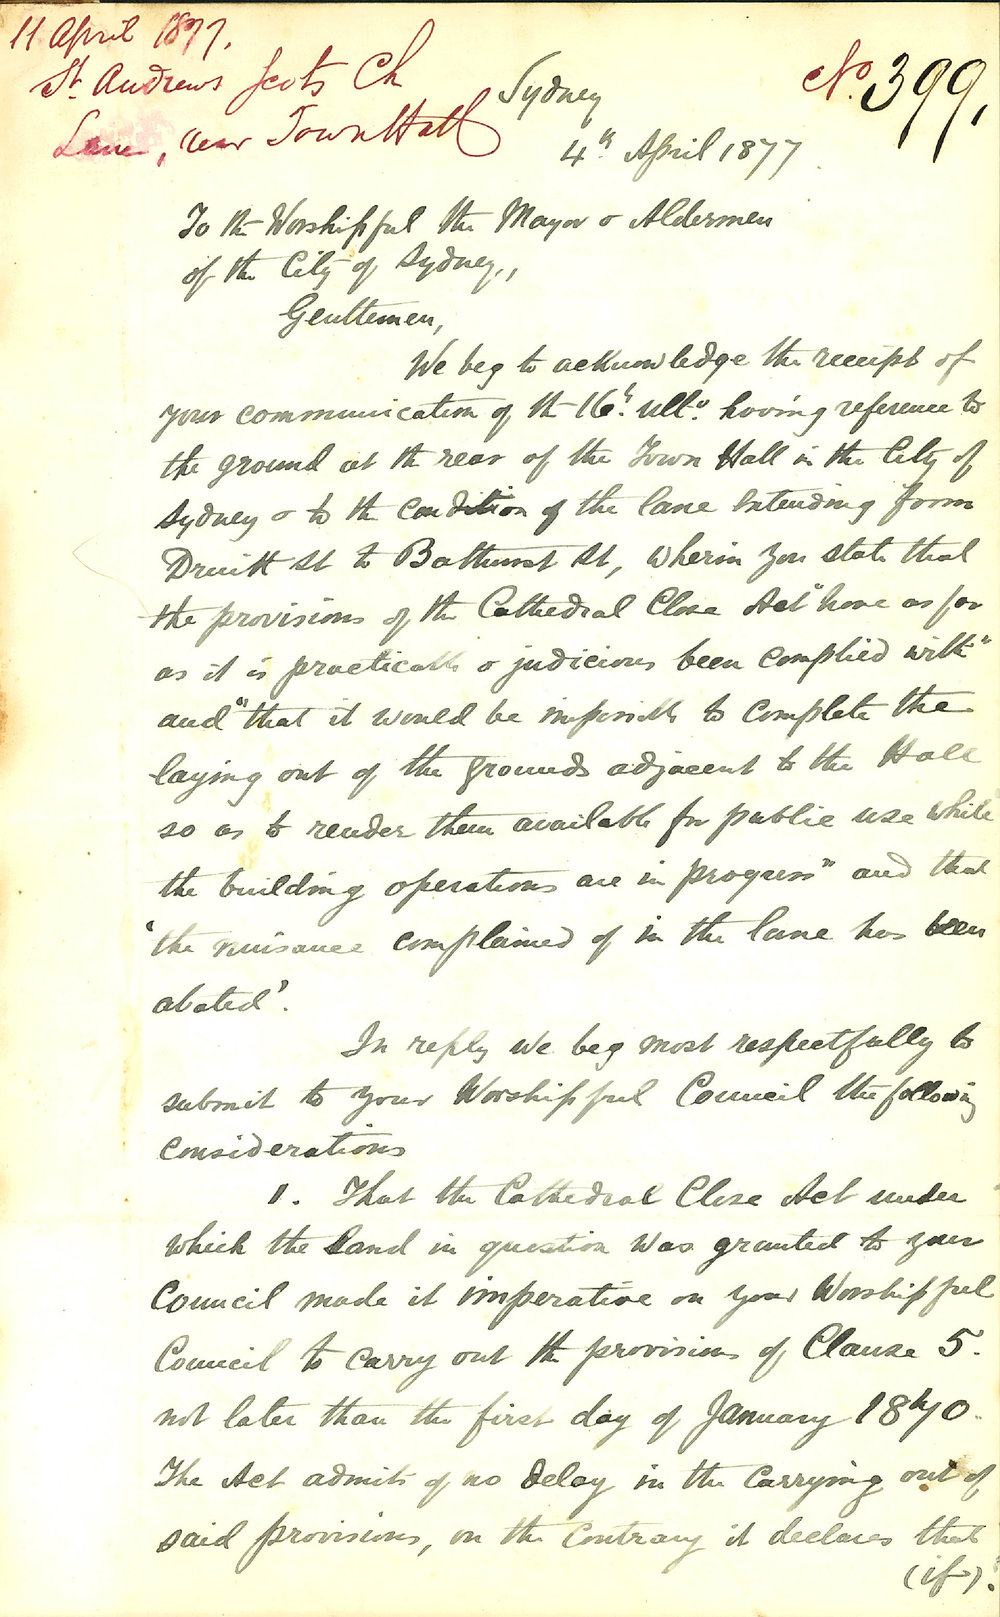 11 April 1877.
St. Andrews Scots Ch
Lane, near Town Hall
No. 399.
Sydney
4th April 1877
To the Worshipful the Mayor & Aldermen
of the City of Sydney,,
Gentlemen,
We beg to acknowledge the receipt of
your communication of the 16th. ullo. having reference to
the ground at the rear of the Town Hall in the City of
Sydney & to the condition of the lane extending from
Druitt St to Bathurst St, wherin you state that
the provisions of the Cathedral Close Act "have as far
as it is practicable & judicious been complied with"
and "that it would be impossible to complete the
laying out of the grounds adjacent to the Hall
so as to render them available for public use while
the building operations are in progress" and that
'the nuisance complained of in the lane has been
abated'.
In reply we beg most respectfully to
submit to your Worshipful Council the following
considerations
1. That the Cathedral Close Act under
which the Land in question was granted to your
Council made it imperative on your Worshipful
Council to carry out the provisions of Clause 5.
not later than the first day of January 1870.
The Act admits of no delay in the carrying out of
said provisions, on the contrary it declares that
(if).